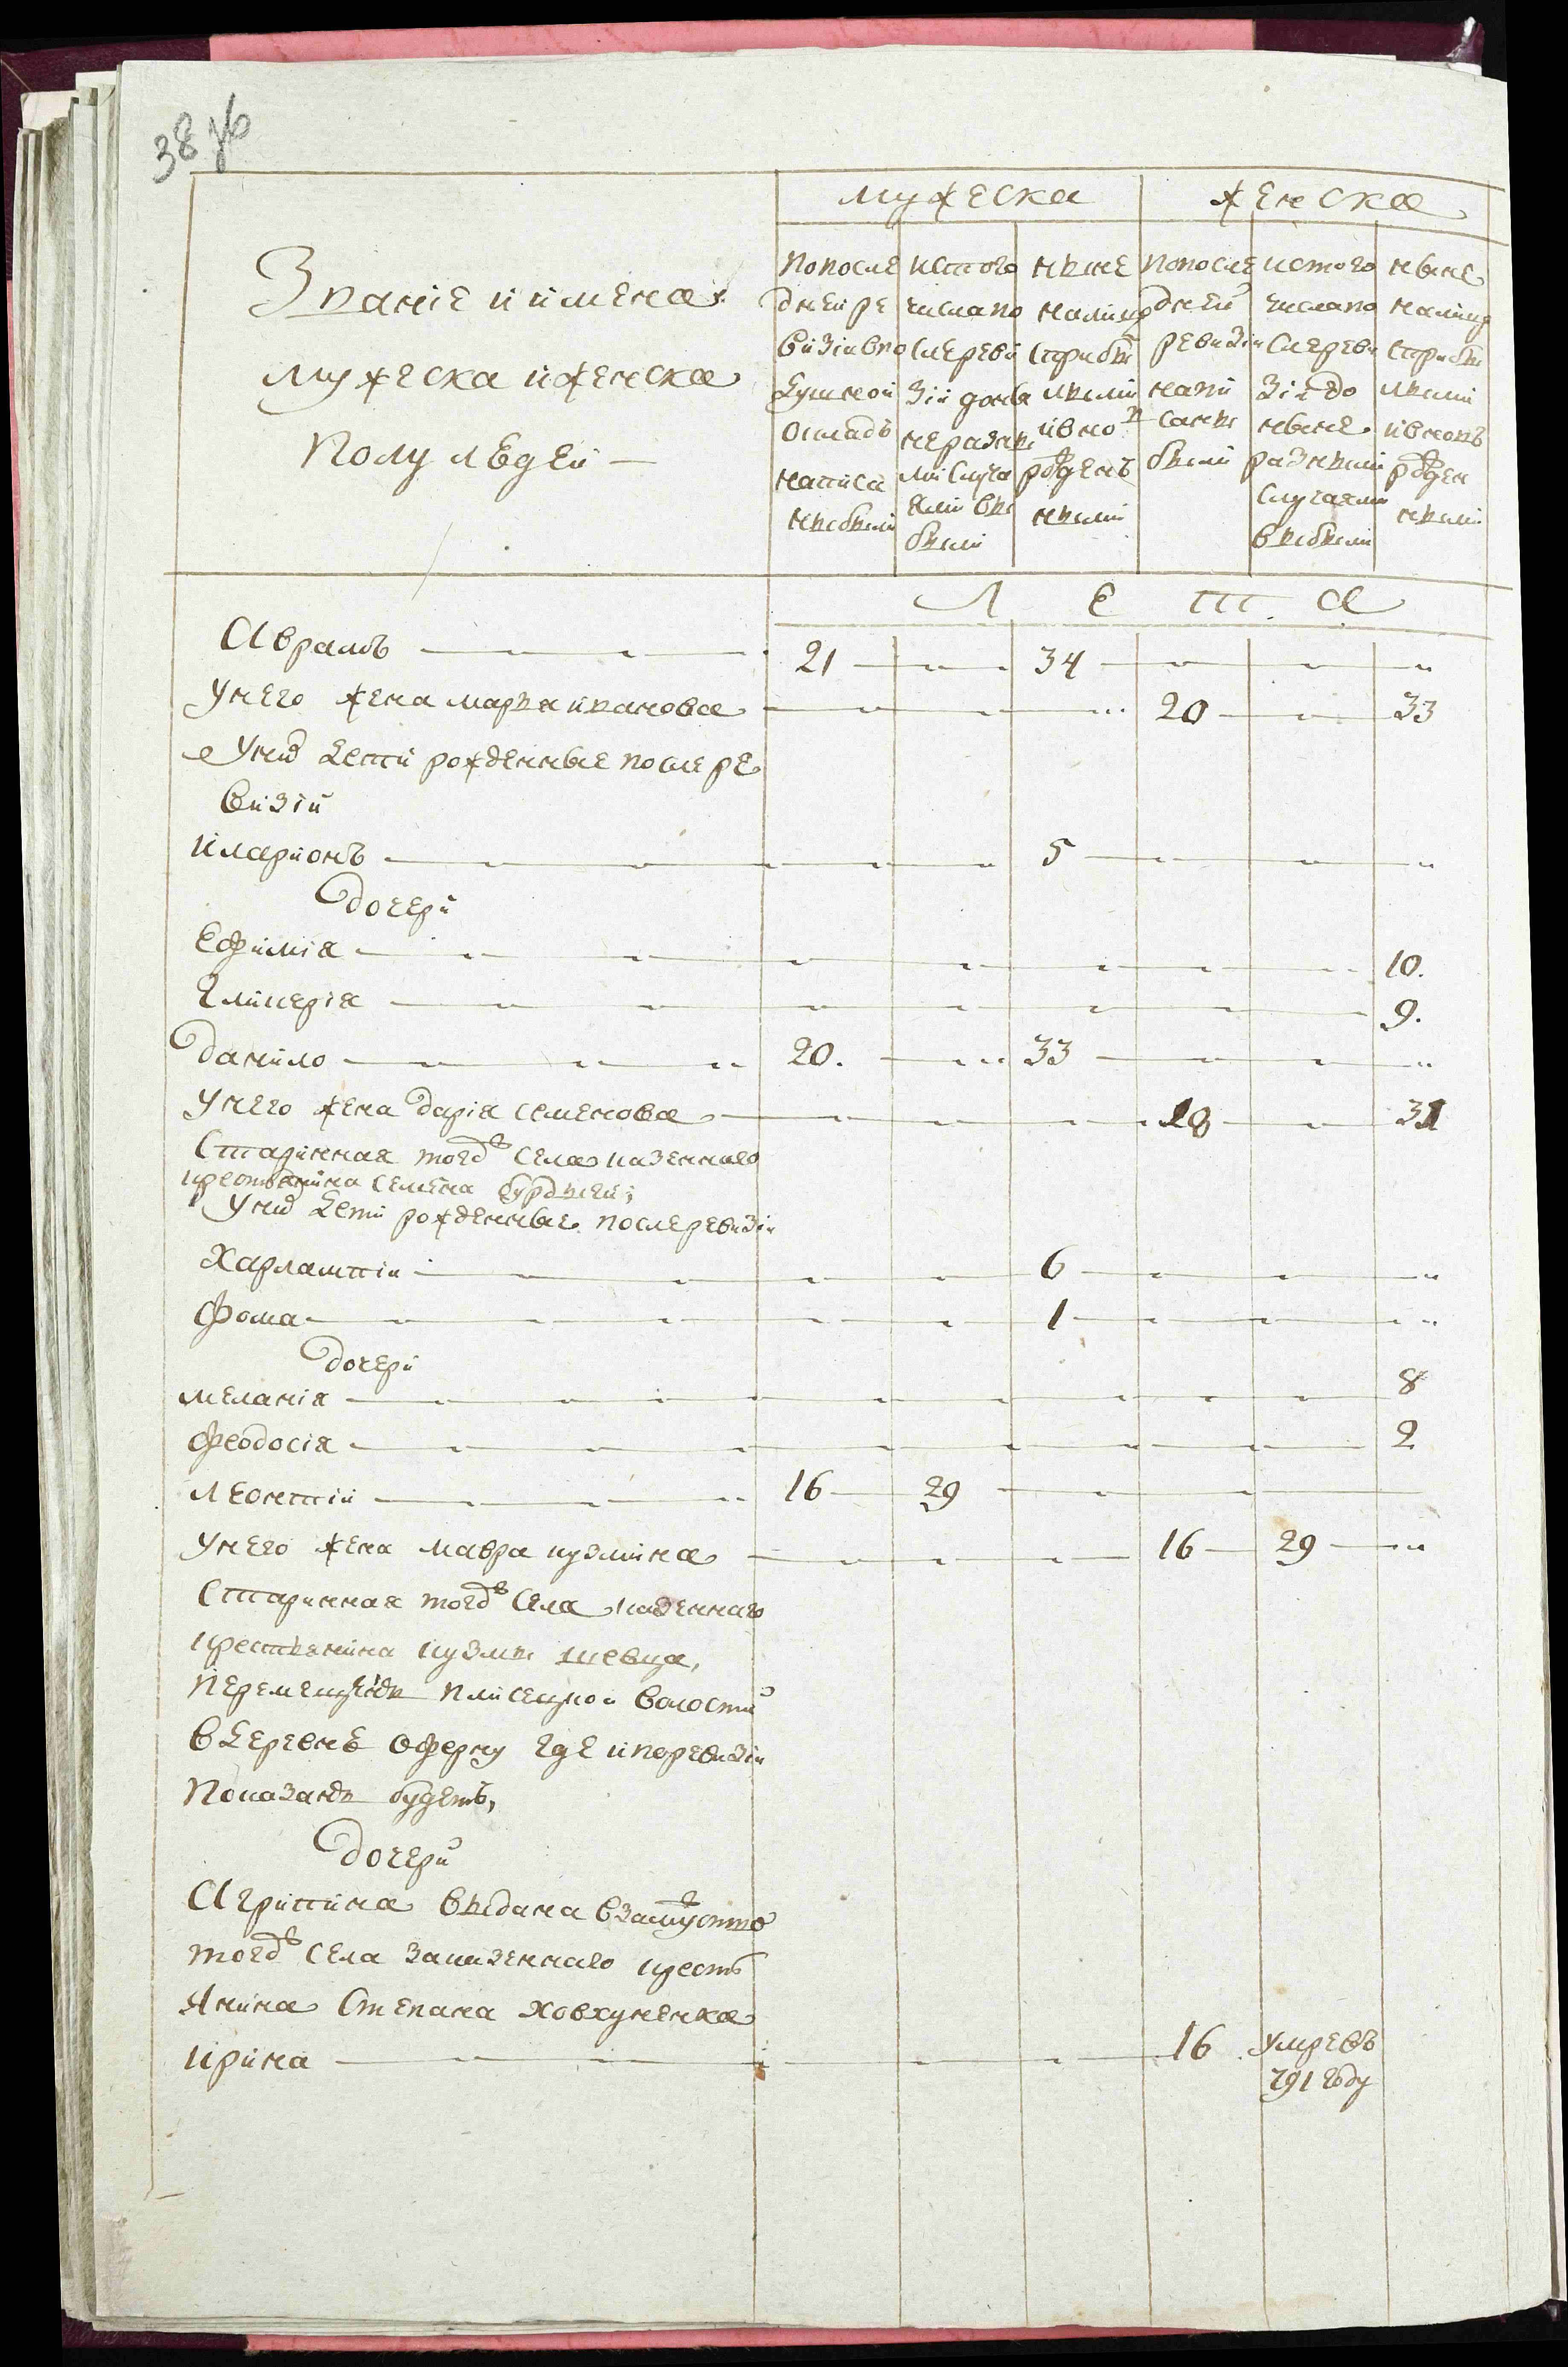 38 зв
мужеска женска
Званіе и имена
мужеска и женска
полу людей —
по после
дней ре
визіи в по
душной
окладъ
написа
ны были
ис того
числа по
сле реви
зіи до ны
не разны
ми случа
ями вы
были
ныне
на лицо
с прибы
лыми
и вно
рожден
ными
по после
дней
ревизіи
напи
саны
были
ис того
числа по
сле реви
зіи до
ныне
разными
случаями
выбыли
ныне
на лицо
с прибы
лыми
и вновъ
рожден
ными
Л е т а
Аврамъ 21 34
у него жена марья иванова 20 33
у них дети рожденные после ре
визіи
иларионъ 5
дочери
Ефимія 10.
Гликерія 9.
данило 20. 33
у него жена дарія семенова 18 31
старинная тоеж села казеннаго
крестьянина семена
у них дети рожденные после ревизіи
Харлампій 6
фома 1
дочери
меланія 8
феодосія 2
леонтій 16 29
у него жена мавра кузмина 16 29
старинная тоеж села казеннаго
крестьянина кузмы шевца,
перемещены плисецкой волости
в деревне оферну где и по ревизіи
показаны будетъ,
дочери
Агрипина выдана в замужство
тоеж села за казеннаго кресть
янина Степана ховхуненка
ирина 16 умре въ
791 году